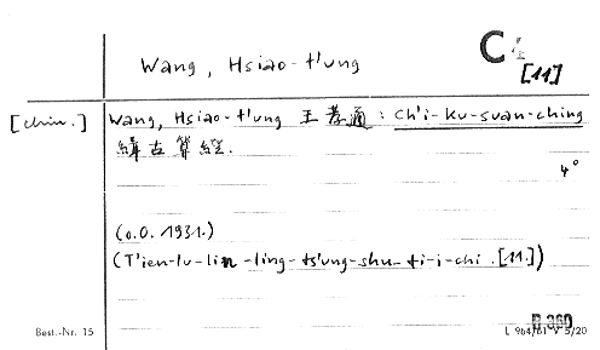 C
Wang, Hsiao-t'ung
[11]
[chin.] Wang, Hsiao-t'ung 王孝通: Ch'i-ku-suan-ching
緝古算經.
4°
(o.O. 1931.)
(T'ien-lu-lin-ling-ts'ung-shu-ti-i-chi.[11.])
Best.-Nr. 15
L 964/61 V 5/20